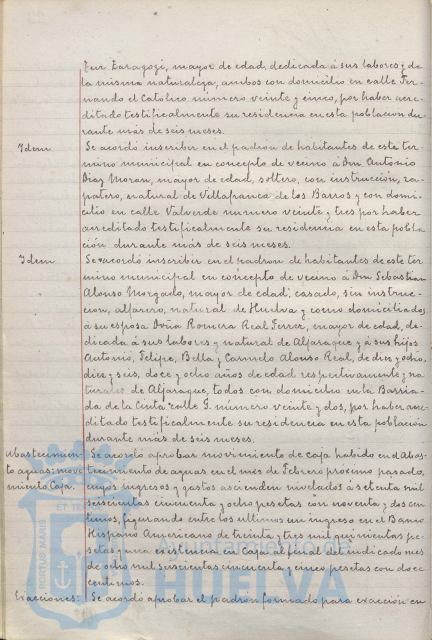 Zaragozi, mayor de edad, dedicada á sus labores y de
la misma naturaleza, ambos con domicilio en calle Fer-
nando el Católico número veinte y cinco, por haber acre-
ditado testificalmente su residencia en esta población du-
rante más de seis meses.
Idem
Se acordó inscribir en el padrón de habitantes de este ter-
mino municipal en concepto de vecino á Don Antonio
Diaz Moran, mayor de edad, soltero, con instrucción, za-
patero, natural de Villafranca de los Barros y con domi-
cilio en calle Valverde numero veinte y tres por haber
acreditado testificalmente su residencia en esta pobla-
ción durante más de seis meses.
Idem
Se acordó inscribir en el padron de habitantes de este tér
mino municipal en concepto de vecino á Don Sebastian
Alonso Morgado, mayor de edad, casado, sin instruc-
cion, alfarero, natural de Huelva y como domiciliados
á su esposa Doña Romera Real Ferrer, mayor de edad, de-
dicada á sus labores y natural de Aljaraque y á sus hijos
Antonio, Felipe, Bella y Carmelo Alonso Real, de diez y ocho,
diez y seis, doce y ocho años de edad respectivamente y na-
turales de Aljaraque, todos con domicilio en la Barria-
da de la Cinta calle G. número veinte y dos, por haber acre-
ditado testificalmente su residencia en esta población
durante más de seis meses.
Abastecimien-
to aguas: movi
miento Caja.
Se acordó aprobar movimiento de caja habido en el Abas-
tecimiento de aguas en el mes de Febrero próximo pasado,
cuyos ingresos y gastos ascienden nivelados á setenta mil
seiscientas cincuenta y ocho pesetas con noventa y dos cen
timos, figurando entre los ultimos un ingreso en el Banco
Hispano Americano de treinta y tres mil quinientas pe-
setas y una existencia en Caja al final del indicado mes
de ocho mil seiscientas cincuenta y cinco pesetas con doce
centimos.
Exacciones:
Se acordó aprobar el padrón formado para exacción en
PORTUS MARIS
ET TE
HUELVA